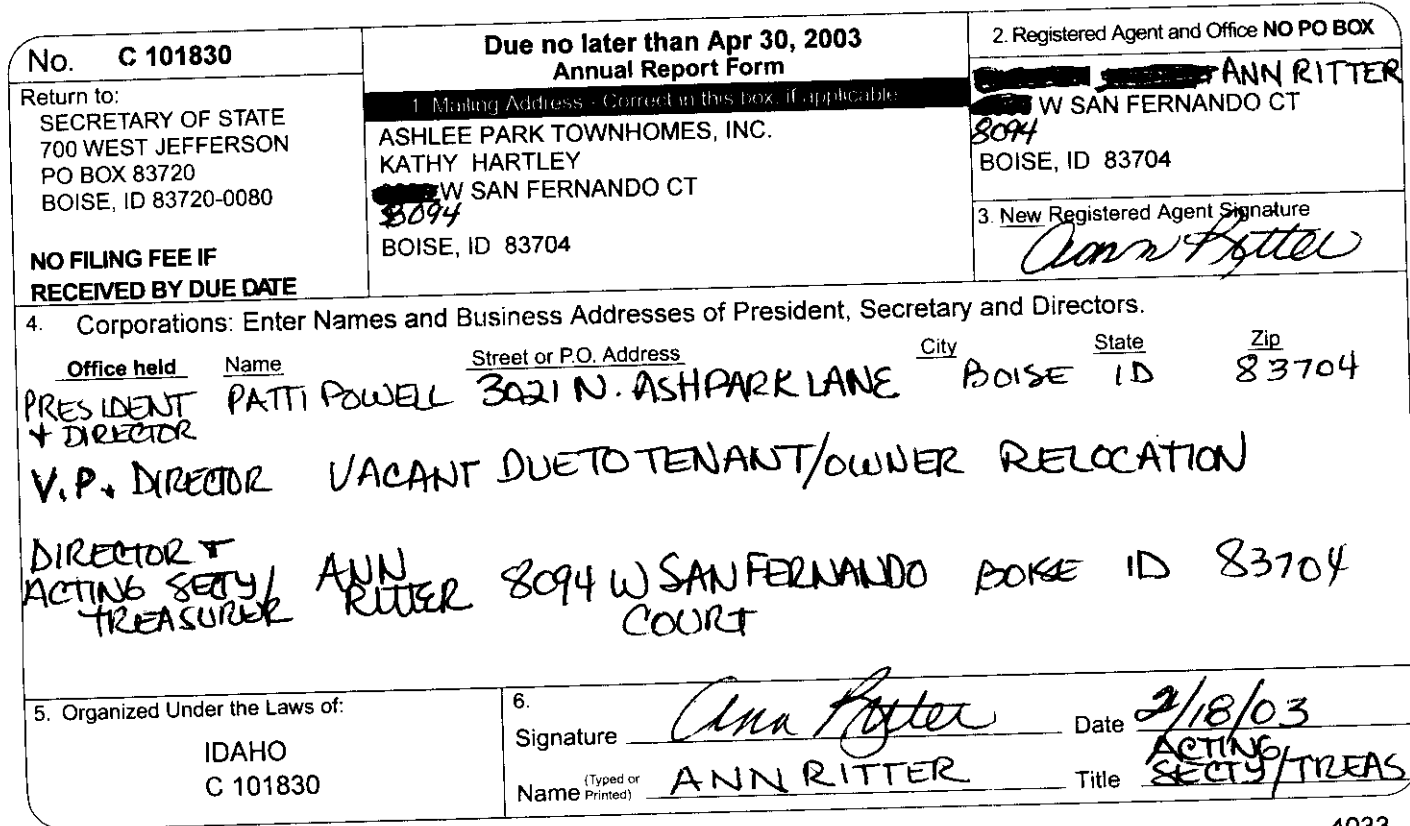 No. C 101830
Return to:
SECRETARY OF STATE
700 WEST JEFFERSON
PO BOX 83720
BOISE, ID 83720-0080
NO FILING FEE IF
RECEIVED BY DUE DATE
Due no later than Apr 30, 2003
Annual Report Form
1. Mailing Address - Correct in this box, if applicable
ASHLEE PARK TOWNHOMES, INC.
KATHY HARTLEY
W SAN FERNANDO CT
8094
BOISE, ID 83704
2. Registered Agent and Office NO PO BOX
ANN RITTER
W SAN FERNANDO CT
8094
BOISE, ID 83704
3. New Registered Agent Signature
Ann Ritter
4. Corporations: Enter Names and Business Addresses of President, Secretary and Directors.
Office held Name Street or P.O. Address City State Zip
PRESIDENT PATTI POWELL 3021 N. ASHPARK LANE BOISE ID 83704
+ DIRECTOR
V.P. DIRECTOR VACANT DUE TO TENANT/OWNER RELOCATION
DIRECTOR +
ACTING SECTY/ ANN RITTER 8094 W SAN FERNANDO BOISE ID 83704
TREASURER COURT
5. Organized Under the Laws of:
IDAHO
C 101830
6.
Signature Ann Ritter Date 2/18/03
Name (Typed or Printed) ANN RITTER Title ACTING SECTY/TREAS